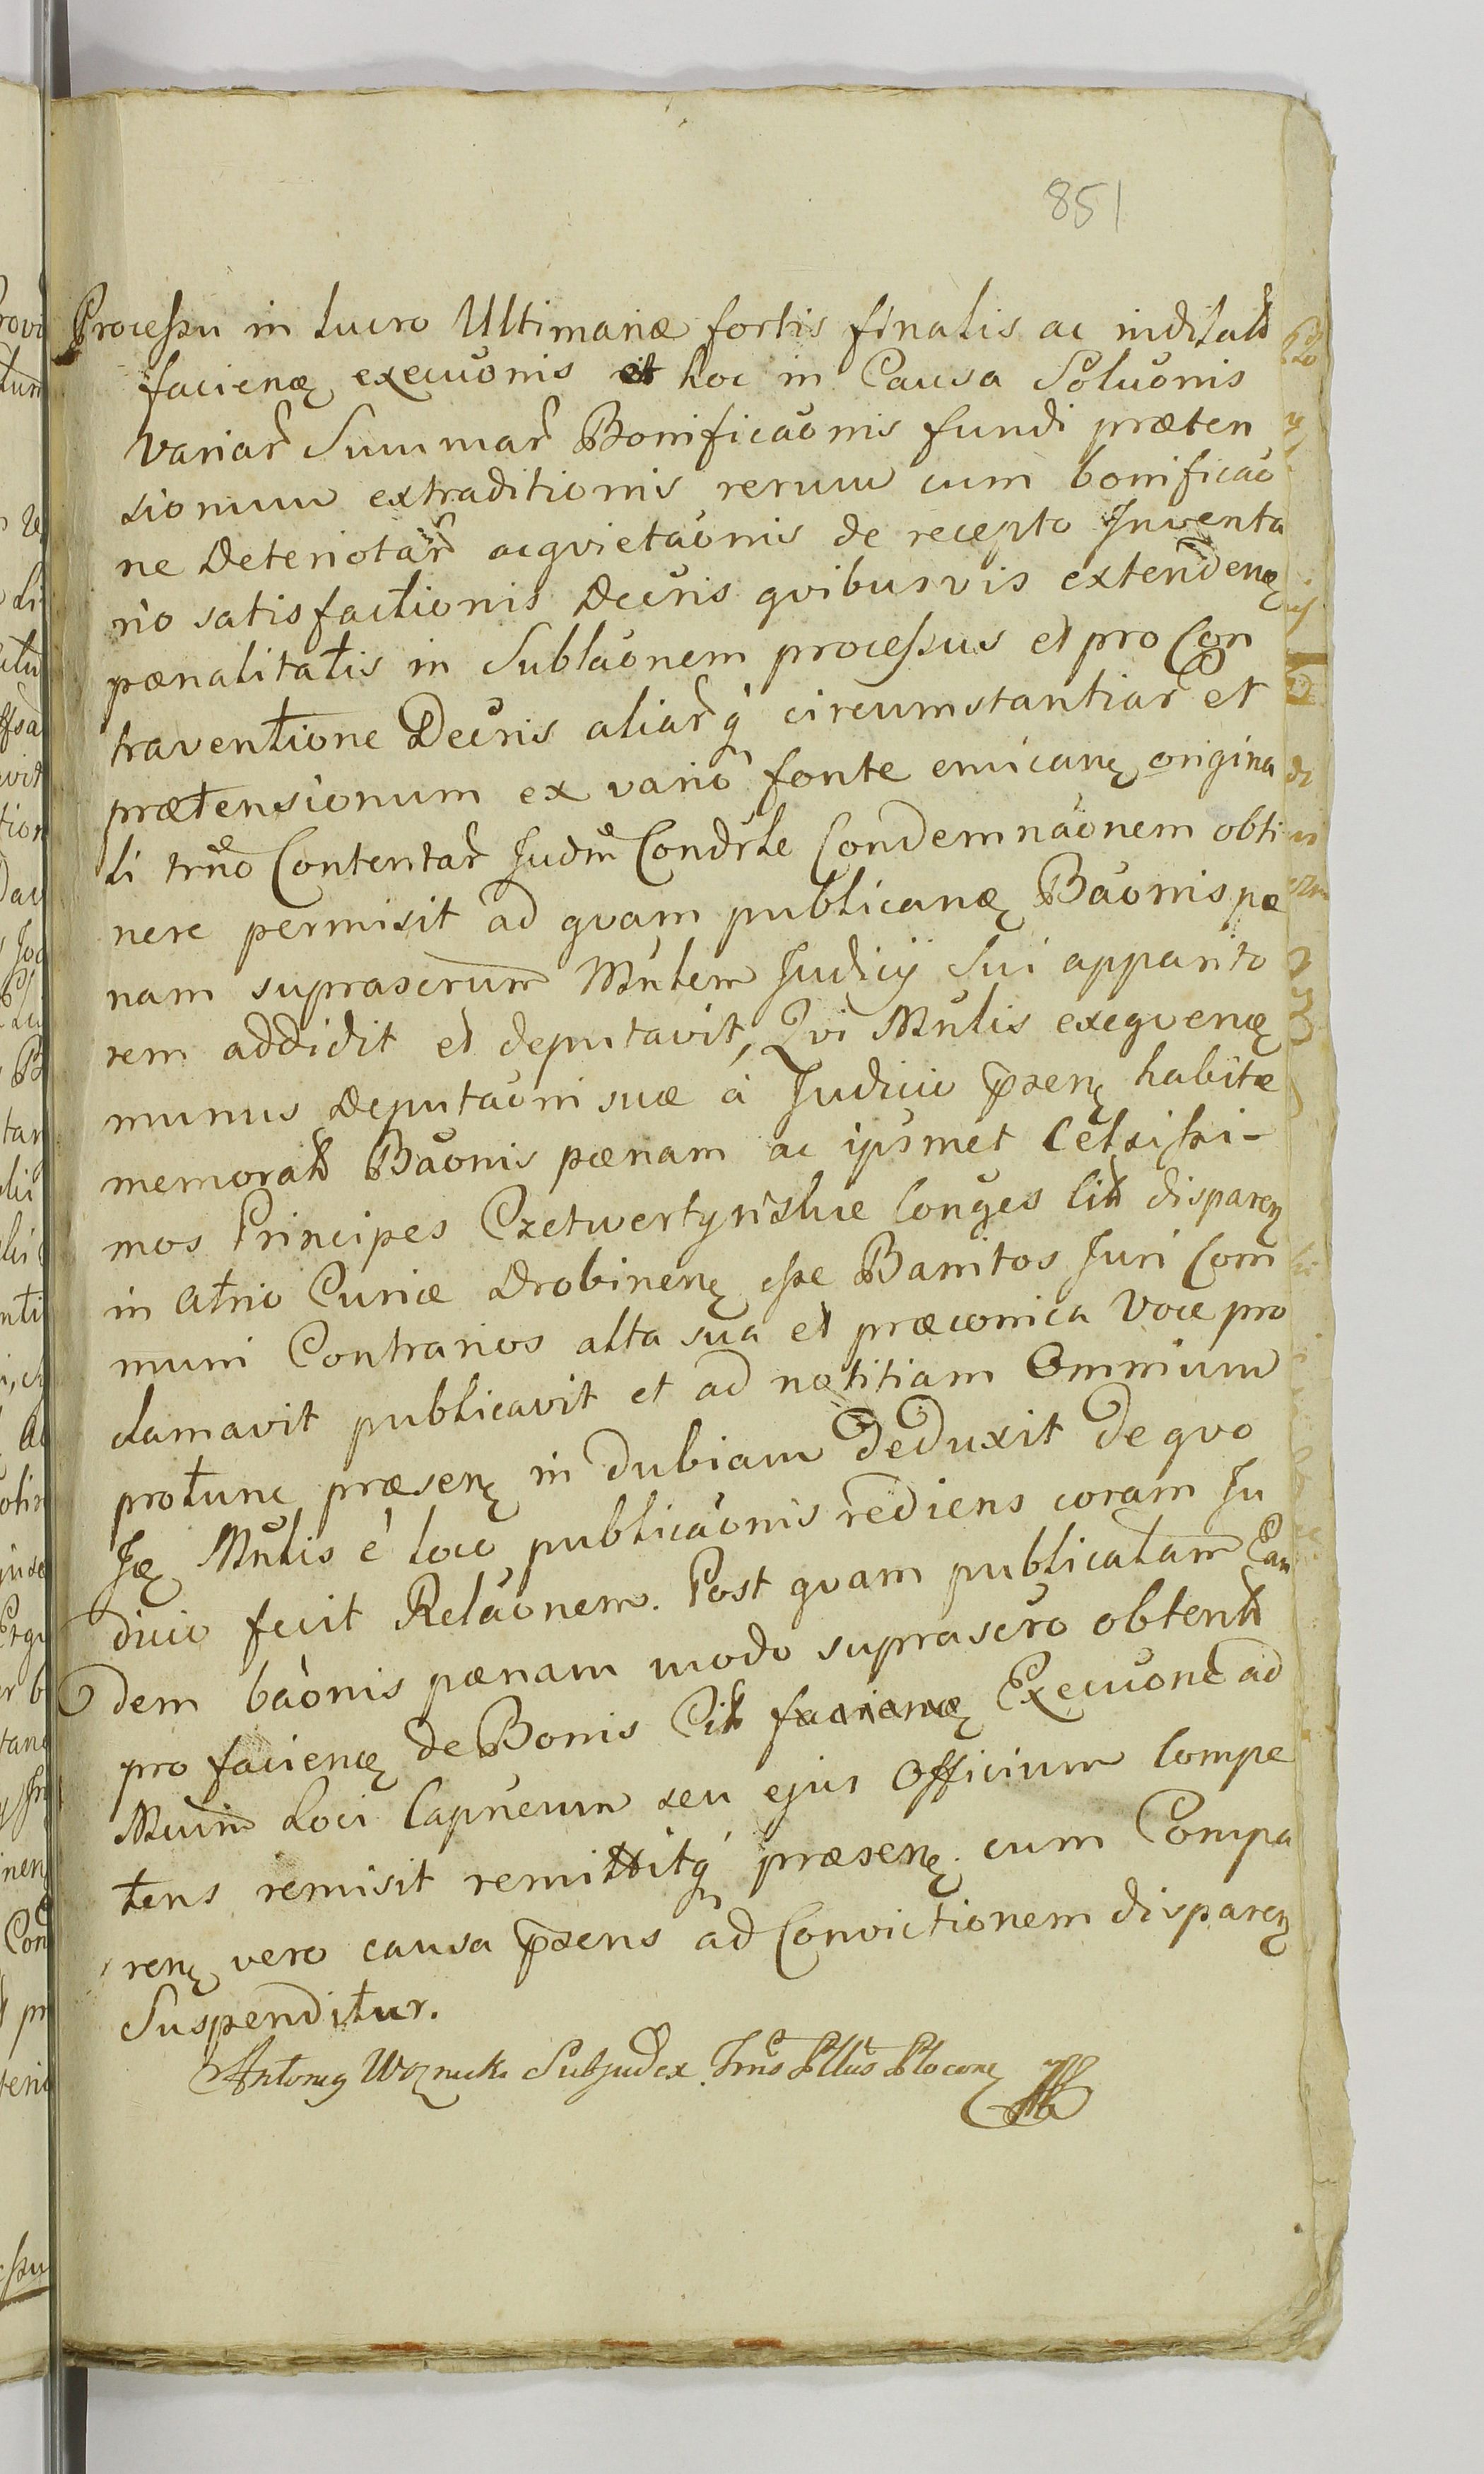 851
Processu in lucro Ultimariæ fortis finalis ac indilatæ
facienę execuōnis et hoc in Causa Soluōnis
variar̃ Summar̃ Bonificaōnis fundi præten
sionum extraditionis rerum cum bonificaō
ne Deteriotar̃ acqvietaōnis de recepto Inventa
rio satisfactionis Decris qvibusvis extendenę
pænalitatis in Sublaōnem processus et pro Con
traventione Decris aliar̃q circumstantiar̃ et
prætensionum ex vario fonte emicanę origina
li trño Contentar̃ Judm̃ Condrle Condemnaōnem obti
nere permisit ad qvam publicanę Baōnis pæ
nam suprascrum Mnlem Judicÿ Sui apparito
rem addidit et deputavit, Qvi Mnlis exeqvenę
munus Deputaōni suæ à Judicio p̃senę habitæ
memoratæ Baōnis pœnam ac ipsmet Celsissi-
mos Principes Czetwertynskie Conges Citt disparen
in Atrio Curiæ Drobinenę esse Banitos Juri Com
muni Contrarios alta sua et præconica Voce pro
clamavit publicavit et ad notitiam Omnium
protunc præsenę in dubiam deduxit de qvo
Ię Mnlis è loco publicaōnis rediens coram Ju
dicio fecit Relaōnem. Post qvam publicatam Ean
dem baōnis pænam modo suprascro obtentæ
pro facienę de Bonis Citt facienę Execuone ad
Muim̃ Loci Capneum seu ejus Officium Compe
tens remisit remittitq præsenę. cum Compa
renę vero causa p̃sens ad Convictionem disparen
Suspenditur.
Antonig Woznicki Subjudex Trus Pllus Plocenę